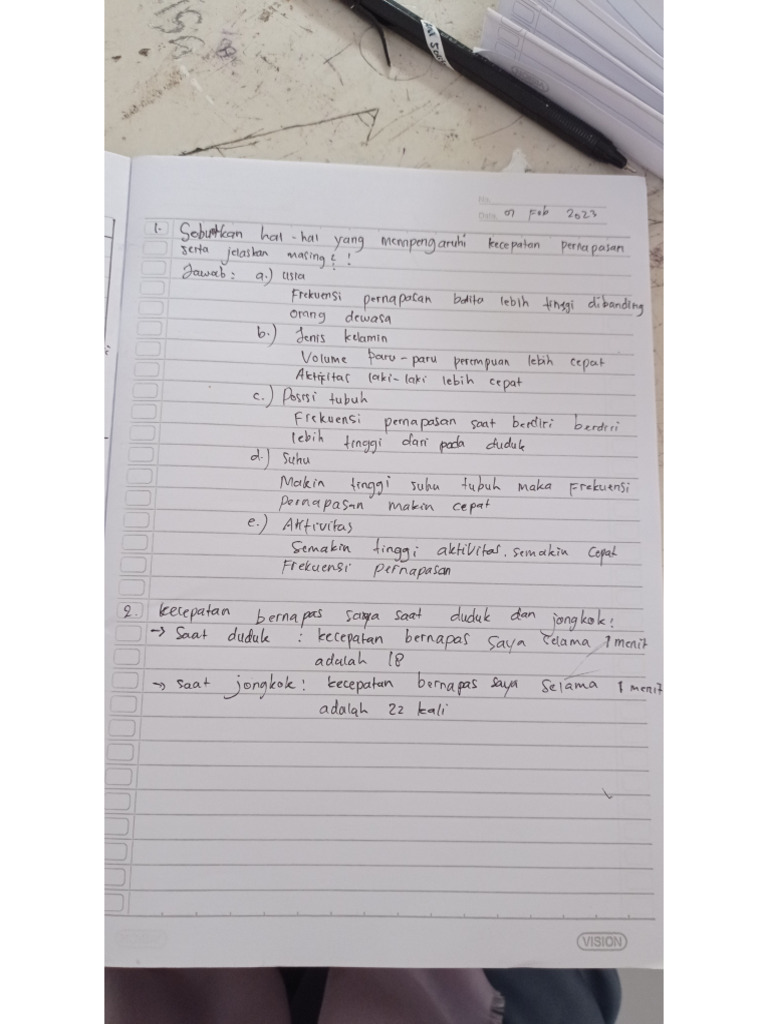 No.
Date. 07 Feb 2023
1. Sebutkan hal-hal yang mempengaruhi kecepatan pernapasan
serta jelaskan masing²!
Jawab: a.) Usia
Frekuensi pernapasan balita lebih tinggi dibanding
orang dewasa
b.) Jenis kelamin
Volume paru-paru perempuan lebih cepat
Aktifitas laki-laki lebih cepat
c.) Posisi tubuh
Frekuensi pernapasan saat berdiri berdiri
lebih tinggi dari pada duduk
d.) Suhu
Makin tinggi suhu tubuh maka Frekuensi
Pernapasan makin cepat
e.) Aktivitas
Semakin tinggi aktivitas, semakin cepat
Frekuensi pernapasan
2. kecepatan bernapas saya saat duduk dan jongkok:
→ Saat duduk : kecepatan bernapas saya selama 1 menit
adalah 18
→ Saat jongkok: kecepatan bernapas saya selama 1 menit
adalah 22 kali
VISION